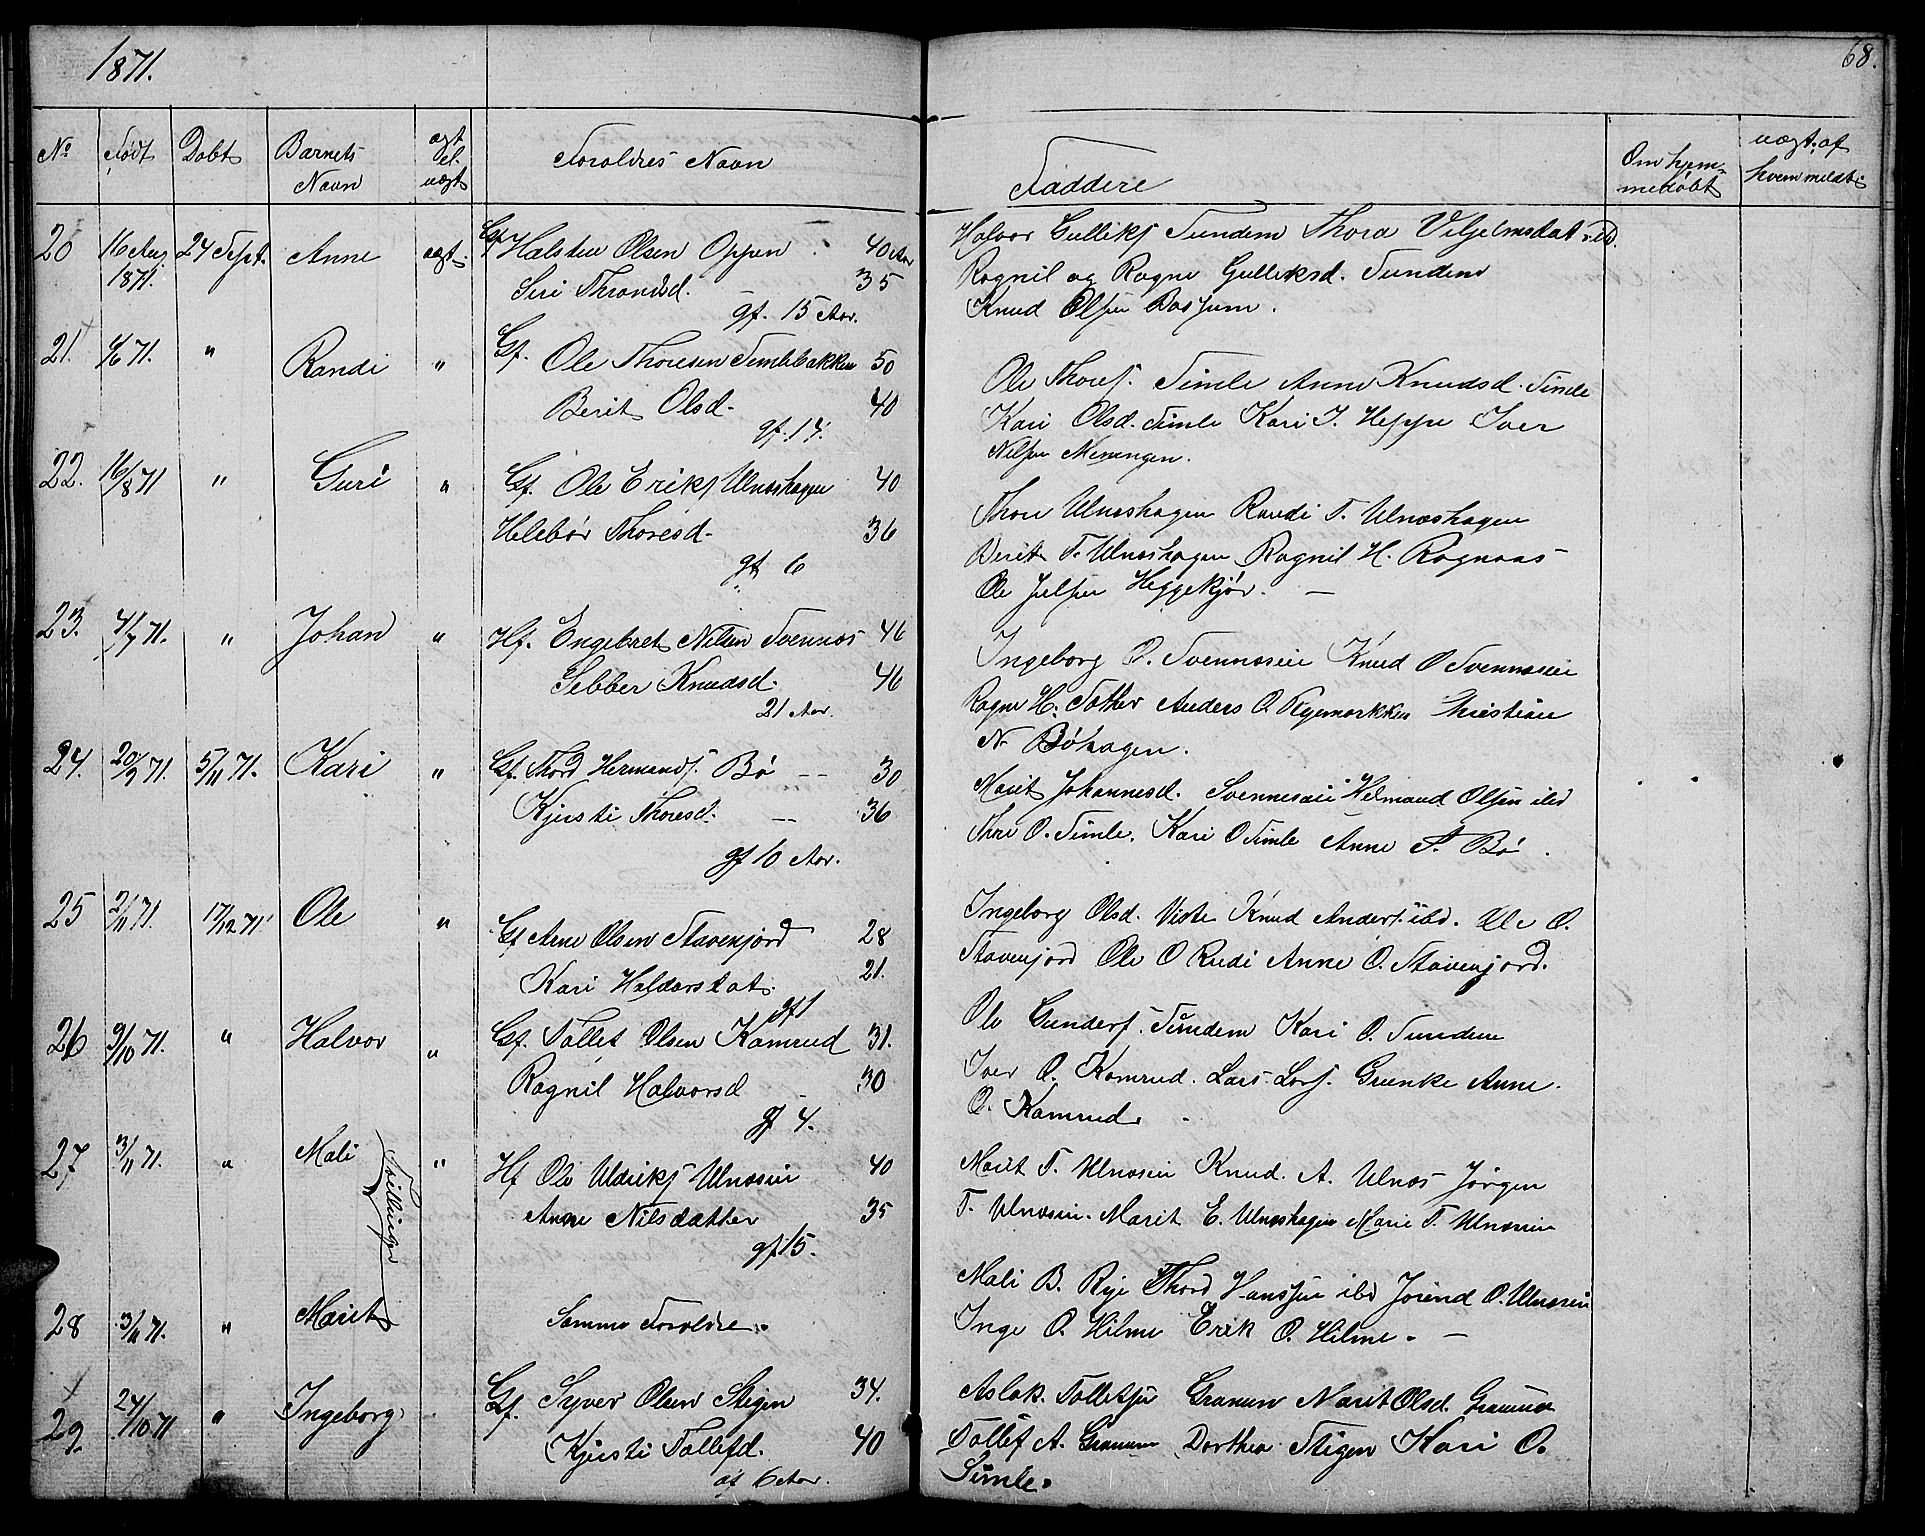 1871.
68.
No Født Døbt Barnets Navn ægt el. uægt Forældres Navn Faddere Om hjemmedøbt uægt. af hvem meldt
20 16 Aug 1871. 24 Sept. Anne ægt. Gf Halsten Olsen Oppen 40 Aar
Siri Throndsd. 35
gf. 15 Aar.
Halvor Gulliksf Sundem Thora Viljelmsdat ibd.
Ragnil og Ragne Gulleksd. Sundem
Knud Olsen
21. 6/6 71. " Randi " Gf. Ole Thoresen Simlebakken 50
Berit Olsd. 40
gf. 17.
Ole Thoresf. Simle Anne Knudsd. Simle
Kari Olsd. Simle Kari I. Heppe Iver
Nilsen
22. 16/8 71 " Guri " Gf. Ole Eriksf Ulnæshagen 40
Helebør Thoresd. 36
gf 6
Thore Ulnæshagen Randi T. Ulnæshagen
Berit T. Ulnæshagen Ragnil H. Rognaas
Ole Heggekjør. —
23. 4/7 71. " Johan " Hf. Engebret Nilsen Svennæs 46
Sebber Knudsd. 46
21 Aar.
Ingeborg O. Svennæseie Knud O Svennæseie
Ragne H. Anders O. Christian
N. Bøhagen.
24. 20/9 71. 5/11 71. Kari " Gf. Thord Hermandsf. Bø -- 30
Kjersti Thoresd. -- 36
gf 10 Aar.
Marit Johannesd. Svenneseie Helmand Olsen ibd
Thore O. Simle. Kari O Simle Anne T. Bø.
25 2/11 71. 17/12 71 Ole " Gf Arne Olsen Stavenjord 28
Kari Haldorsdat. 21.
gf 1
Ingeborg Olsd. Viste Knud Andersf. ibd. Ole O.
Stavenjord Ole O Rudi Anne O. Stavenjord.
26 9/10 71. " Halvor " Gf. Tollef Olsen Kamrud 31.
Ragnil Halvorsd 30
gf 4.
Ole Gundersf. Sundem Kari O. Sundem
Iver O. Kamrud. Lars Larsf. Gunke Anne
O. Kamrud.
27 3/11 71. " Mali Tvillinger " Hf Ole Ulriksf Ulnæseie 40
Anne Nilsdatter 35
gf 15.
Marit T. Ulnæseie Knud. A. Ulnæs Jørgen
T. Ulnæseie. Marit E. Ulnæshagen Marie T. Ulnæseie
28 3/11 71. " Marit Samme Forældre.
Mali B. Rye Thord Hansen ibd Jørend O. Ulnæseie
Inge O. Hilme Erik O. Hilme. —
29. 24/10 71 " Ingeborg Gf. Syver Olsen Stigen 34.
Kjersti Tollefsd. 40
gf 6 Aar.
Aslak. Tollefsen Granum Marit Olsd. Granum
Tollef A. Granum Dorthea Stigen Kari O.
Simle.